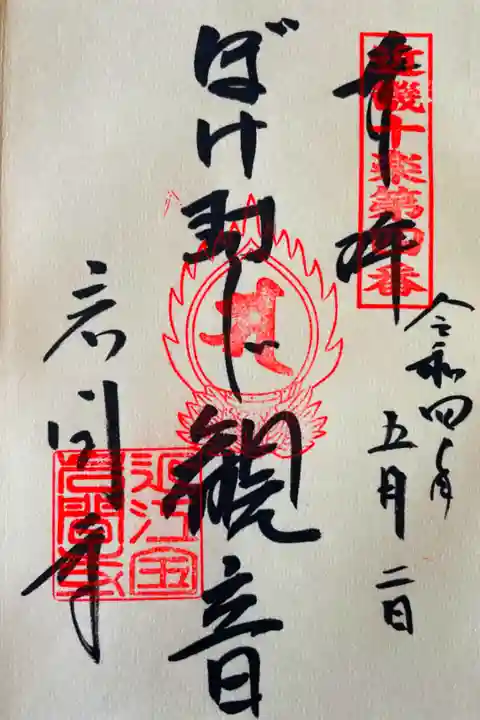 近畿十楽第四番
奉拝
令和四年
五月二日
ぼけ封じ観音
岩間寺
近江国
岩間寺